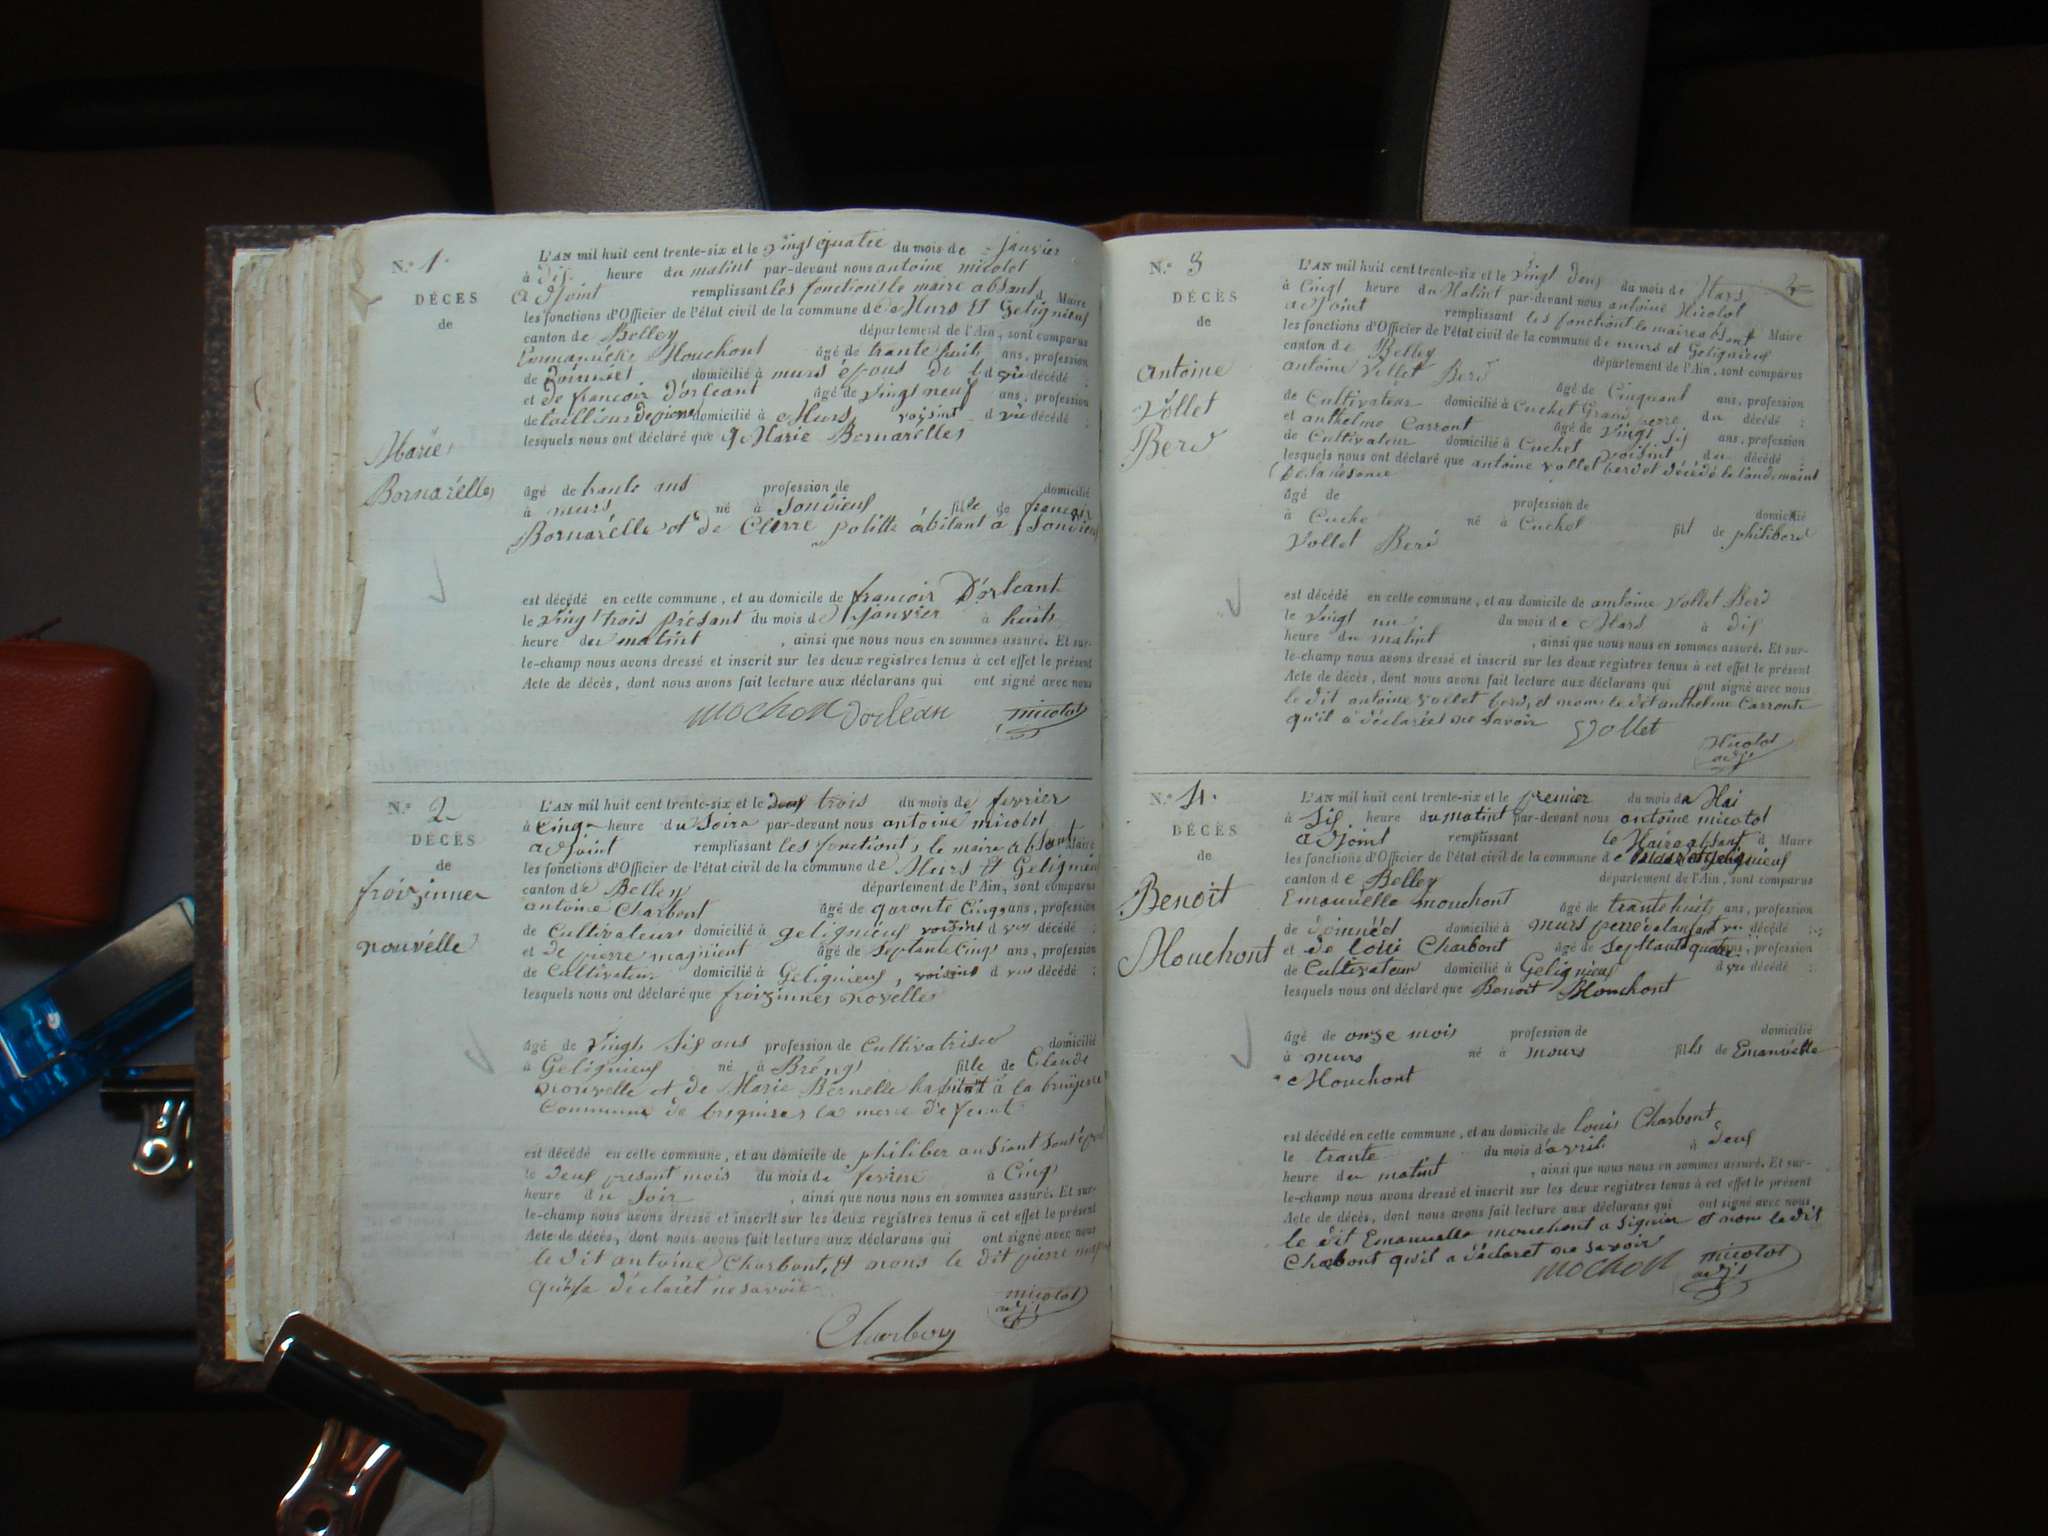 N.° 1.
DÉCES
de
Marie
Bornarélles
L'AN mil huit cent trente-six et le vingt quatre du mois de janvier
à dis heure du matint par-devant nous antoine micolot
adjoint remplissant les fonctions le maire absant d Maire
les fonctions d'Officier de l'état civil de la commune de Murs Et Gelignieux
canton de Belley département de l'Ain, sont comparus
Mouchont âgé de trante huit ans, profession
de domicilié à murs épous de l d décédé ;
et de françoir d'orleant âgé de vingt neuf ans, profession
de tailleur de pierre domicilié à Murs, voisint d décédé ;
lesquels nous ont déclaré que Marie Bornarélles
âgé de trante ans profession de domicilié
à murs né à Sondieus fille de françois
Bornarélle et de Clerre politte abitant à
est décédé en cette commune, et au domicile de françoir D'orleant
le vingt trois présant du mois de janvier à huits
heure du matint , ainsi que nous nous en sommes assuré. Et sur-
le-champ nous avons dressé et inscrit sur les deux registres tenus à cet effet le présent
Acte de décès, dont nous avons fait lecture aux déclarans qui ont signé avec nous
mochon dorlean micolot
N.° 2
DÉCÈS
de
froizinner
nouvélle
L'AN mil huit cent trente-six et le trois du mois de fevrier
à cinq heure du Soire par-devant nous antoine micolot
adjoint remplissant les fonctions, le maire absant Maire
les fonctions d'Officier de l'état civil de la commune de Murs Et Gelignieus
canton de Belley département de l'Ain, sont comparus
antoine Charbont âgé de quronte cinqs ans, profession
de Cultivateurs domicilié à gelignieus voisint d décédé ;
et de pierre magnient âgé de septante cinqs ans, profession
de Cultivateur domicilié à Gelignieus, voisint d décédé ;
lesquels nous ont déclaré que froizinnes novelles
âgé de vingt Sis ans profession de Cultivatrise domicilié
à Gelignieus né à Bréngs fille de Claude
nouvelle et de Marie Bernelle habitat à la
Commune de la mere
est décédé en cette commune, et au domicile de philiber
le deus presant mois du mois de fevrier à Cinqs
heure du Soir , ainsi que nous nous en sommes assuré. Et sur-
le-champ nous avons dressé et inscrit sur les deux registres tenus à cet effet le présent
Acte de décès, dont nous avons fait lecture aux déclarans qui ont signé avec nous
le dit antoine Charbont, et nons le dit pierre
qu'il a déclarét ne savoir
micolot
adjt
Charbon
N.° 3
DÉCÈS
de
antoine
Vollet
Berd
L'AN mil huit cent trente-six et le vingt deus du mois de Mars
à Cinqt heure du Matint par-devant nous antoine Micolot
adjoint remplissant les fonctiont le maire absant Maire
les fonctions d'Officier de l'état civil de la commune de murs et Gelignieus
canton de Belley département de l'Ain, sont comparus
antoine Vollet Berd âgé de Cinquant ans, profession
de Cultivateur domicilié à Cuchet Grand perre du décédé ;
et anthelme Carront âgé de vingt Sis ans, profession
de Cultivateur domicilié à Cuchet voisint du décédé
lesquels nous ont déclaré que antoine vollet berd et décédé le landemaint
de la nésance
âgé de profession de domicilié
à Cuche né à Cuchet fils de philiberd
Vollet Berd
est décédé en cette commune, et au domicile de antoine Vollet Berd
le vingt un du mois de Mars à dis
heure du matint , ainsi que nous nous en sommes assuré. Et sur-
le-champ nous avons dressé et inscrit sur les deux registres tenus à cet effet le présent
Acte de décès, dont nous avons fait lecture aux déclarans qui ont signé avec nous
le dit antoine vollet berd, et nons le dit anthelme Carronte
qu'il a déclarées ne savoir Vollet
Micolot
adjt
N.° 4.
DÉCÈS
de
Benoit
Mouchont
L'AN mil huit cent trente-six et le premier du mois de Mai
à Sis heure du matint par-devant nous antoine micolot
adjoint remplissant le Maire absant d Maire
les fonctions d'Officier de l'état civil de la commune de gelignieus
canton de Belley département de l'Ain, sont comparus
Emanuélle mouchont âgé de trante huit ans, profession
de domicilié à murs perre de lanfant décédé ;
et de loüis Charbont âgé de septante quatre ans, profession
de Cultivateur domicilié à Gelignieus d décédé ;
lesquels nous ont déclaré que Benoit Mouchont
âgé de onse mois profession de domicilié
à murs né à mours fils de Emanuélle
Mouchont
est décédé en cette commune, et au domicile de louis Charbont
le trante du mois d'avril à deus
heure du matint , ainsi que nous nous en sommes assuré. Et sur-
le-champ nous avons dressé et inscrit sur les deux registres tenus à cet effet le présent
Acte de décès, dont nous avons fait lecture aux déclarans qui ont signé avec nous
le dit Emanuelle mouchont a Signier et nons le dit
Charbont qu'il a déclaret ne savoir
mochon micolot
adjt